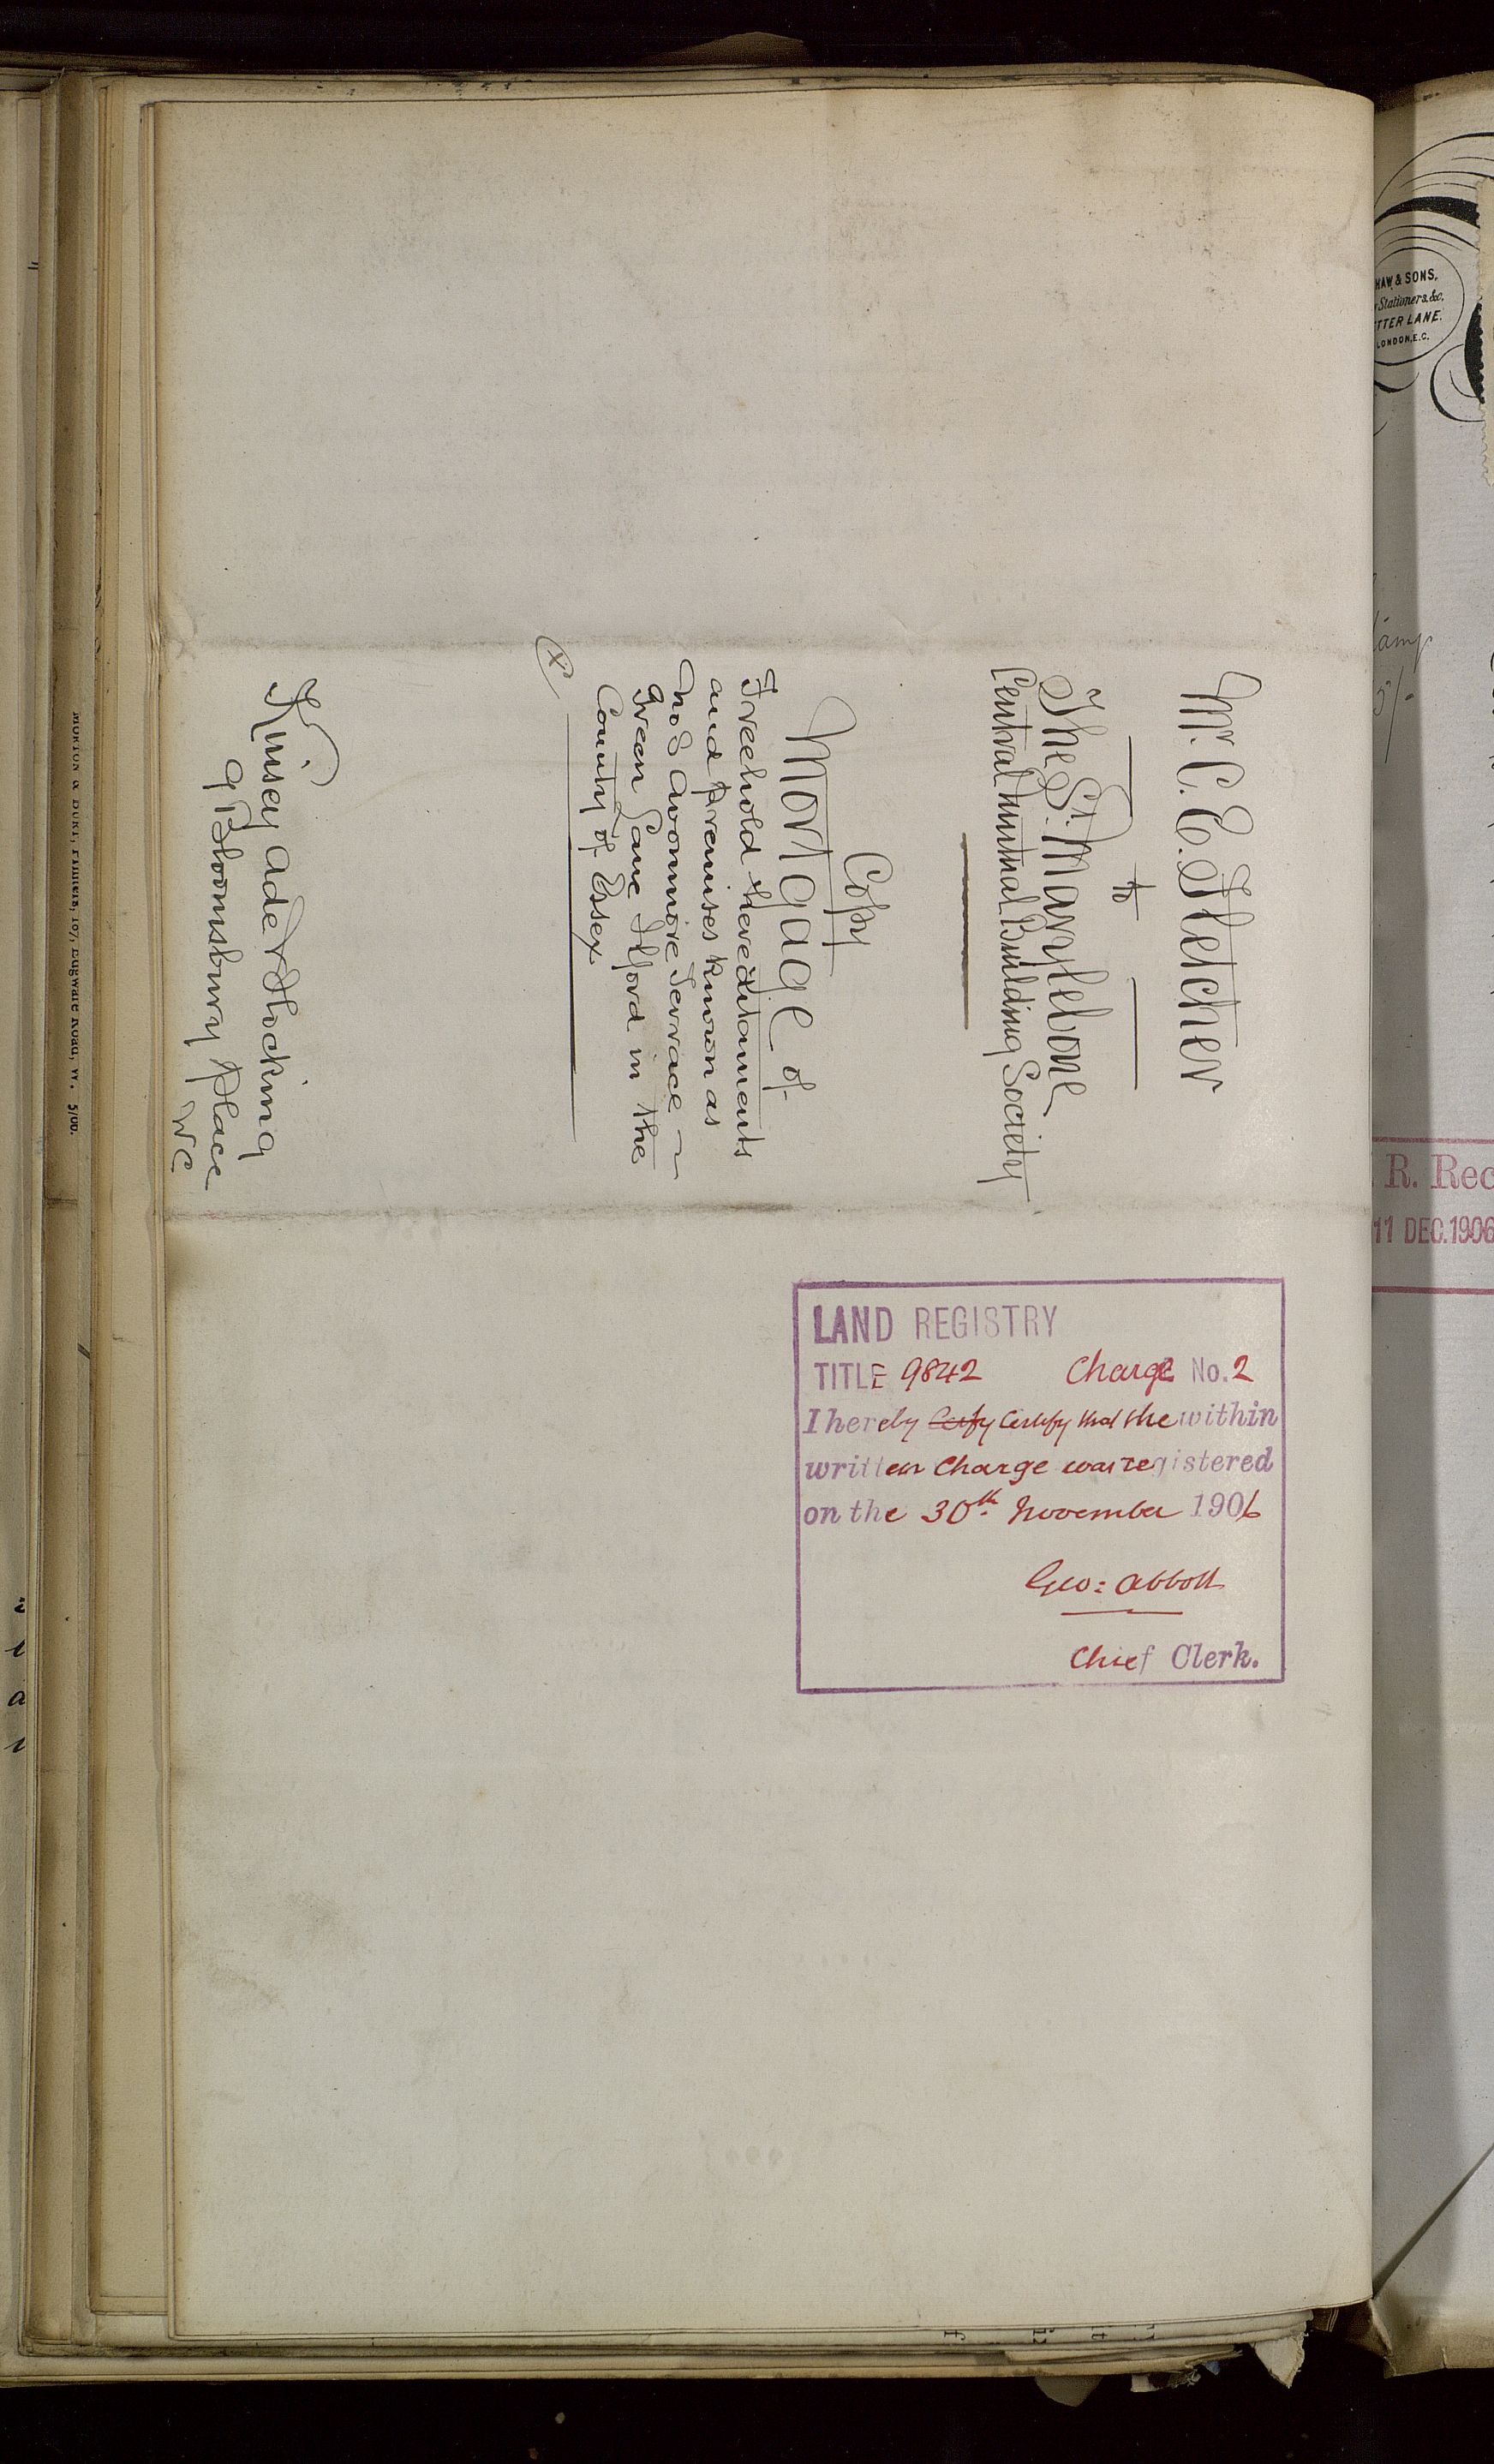 Mr. C. E. Fletcher
to
The St. Marylebone
Central Mutual Building Society
Copy
Mortgage of
Freehold Hereditaments
and premises known as
No 8 Avonmore Terrace
Green Lane Ilford in the
County of Essex
Kinsey Ade & Hocking
9 Bloomsbury Place
WC
LAND REGISTRY
TITLE 9842 Charge No. 2
I hereby Certify that the within
written Charge was registered
on the 30th November 1906
Geo: Abbott
Chief Clerk.
HAW & SONS,
Stationers &c.
TTER LANE.
LONDON, E.C.
5/-
R. Rec
11 DEC. 1906
Edgware Road, W. 5/00.